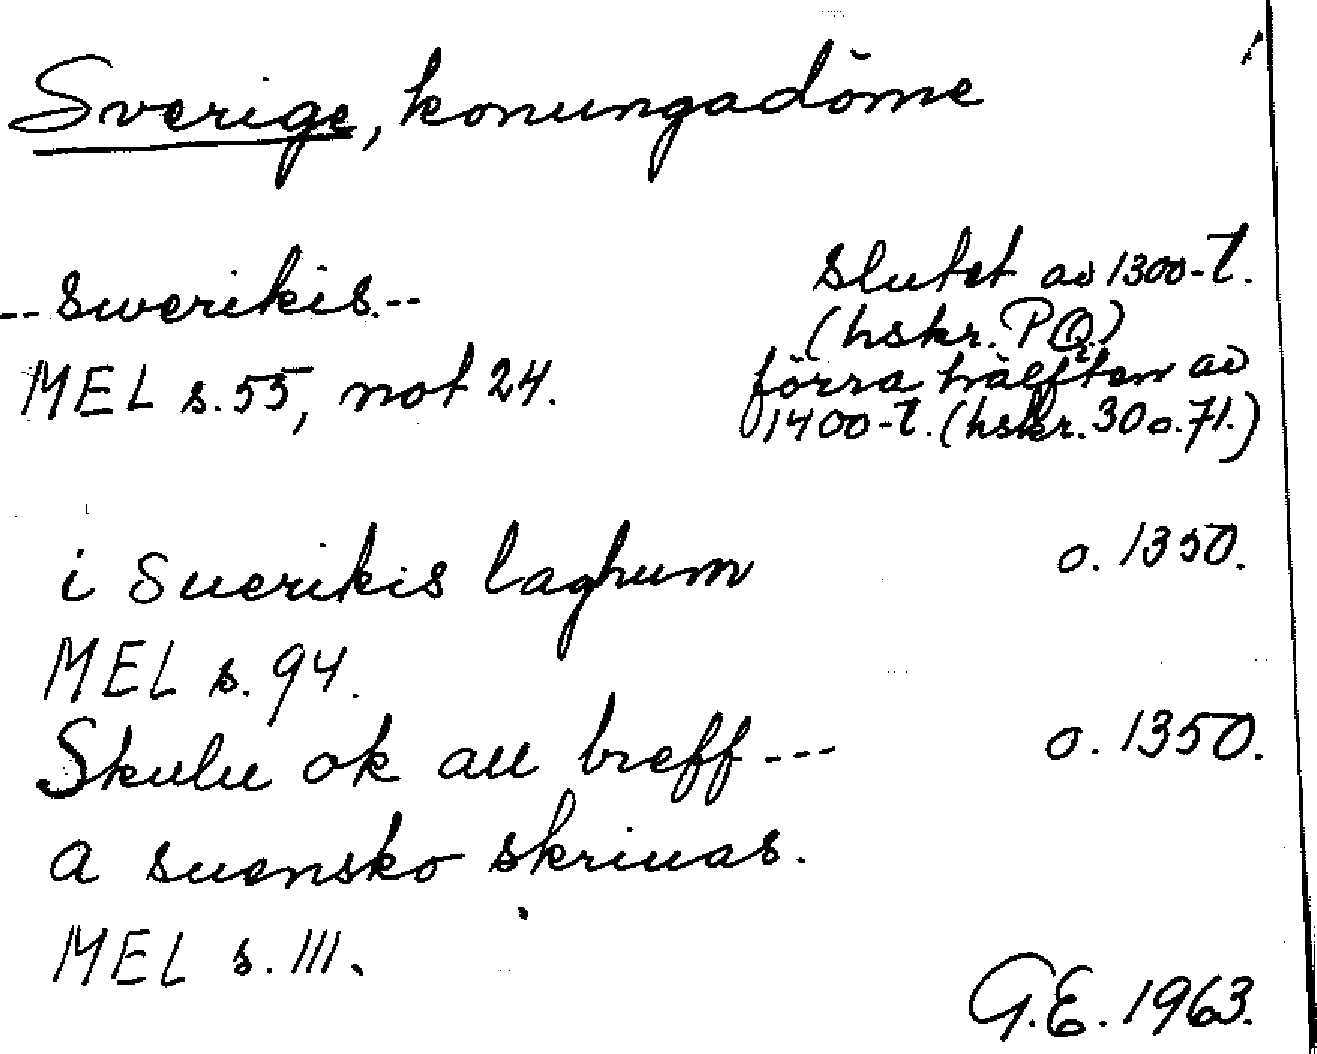 Sverige, konungadöme
-- swerikis --
MEL s. 55, not 24.
Slutet av 1300-t.
(hskr. PQ)
förra hälften av
1400-t. (hskr. 30 o. 71.)
i Suerikis laghum
o. 1350.
MEL s. 94.
Skulu ok all breff ---
o. 1350.
a suensko skriuas.
MEL s. 111.
G.E. 1963.